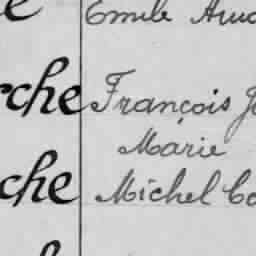 Emile
rche François
Marie
che Michel